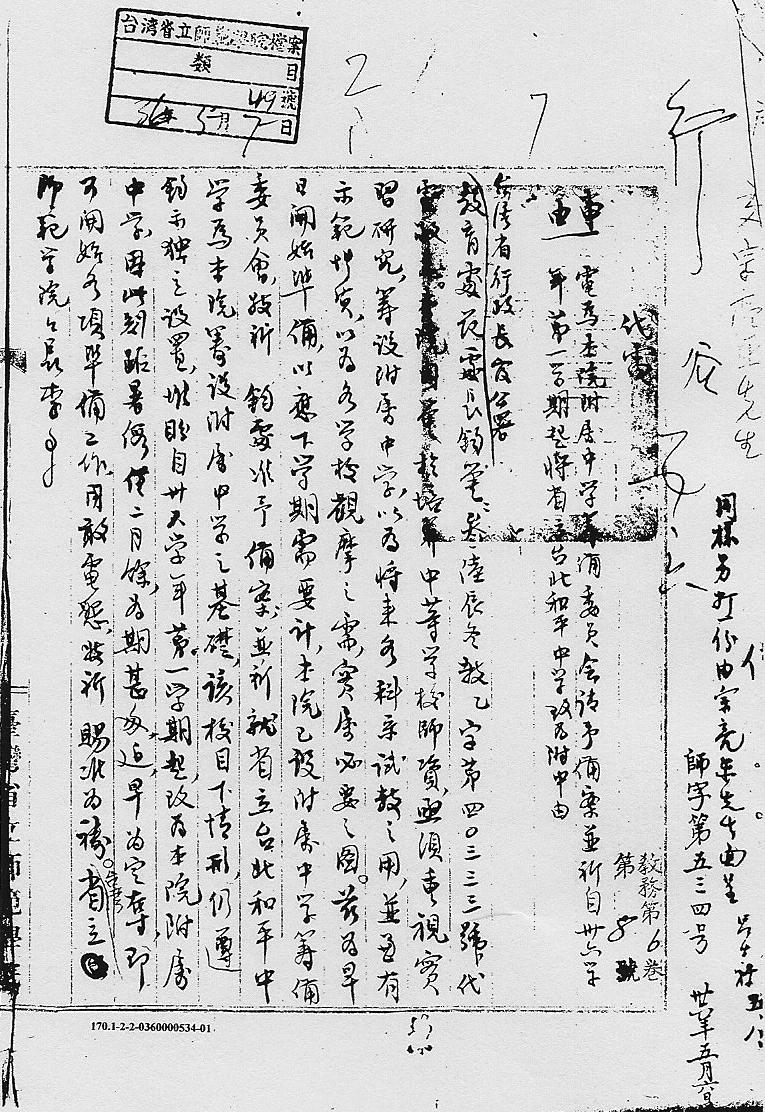 台灣省立師範學院檔案
類 目
49號
36年5月7日
行
代電
事由
電為本院附屬中學籌備委員会請予備案並祈自卅六学
年第一学期起將省立台北和平中学改為附中由
教務第6卷
第8號
台湾省行政長官公署
教育處范處長鈞鑒:
陸辰冬教乙字第四0三三三號代
電敬悉。本院
中等学校師資,亟須重視實
習研究,籌設附屬中学,以為將来各科系試教之用,並且有
示範性質,以為各学校觀摩之需,實屬必要之圖。茲為早
日開始準備,以應下学期需要計,本院已設附屬中学籌備
委員會,敬祈 鈞處准予備案,並祈就省立台北和平中
学為本院籌設附屬中学之基礎,該校目下情形,仍遵
鈞示独立設置,惟盼自卅六学年第一学期起,改為本院附屬
中学,因此刻距暑假僅二月餘,為期甚迫,早為定奪,即
可開始各項準備工作,用敢電懇,敬祈 賜准為禱。省立
師範学院院長李
同樣另打一份由宗亮先生面呈
師字第五三四号
卅六年五月六日
170.1-2-2-0360000534-01